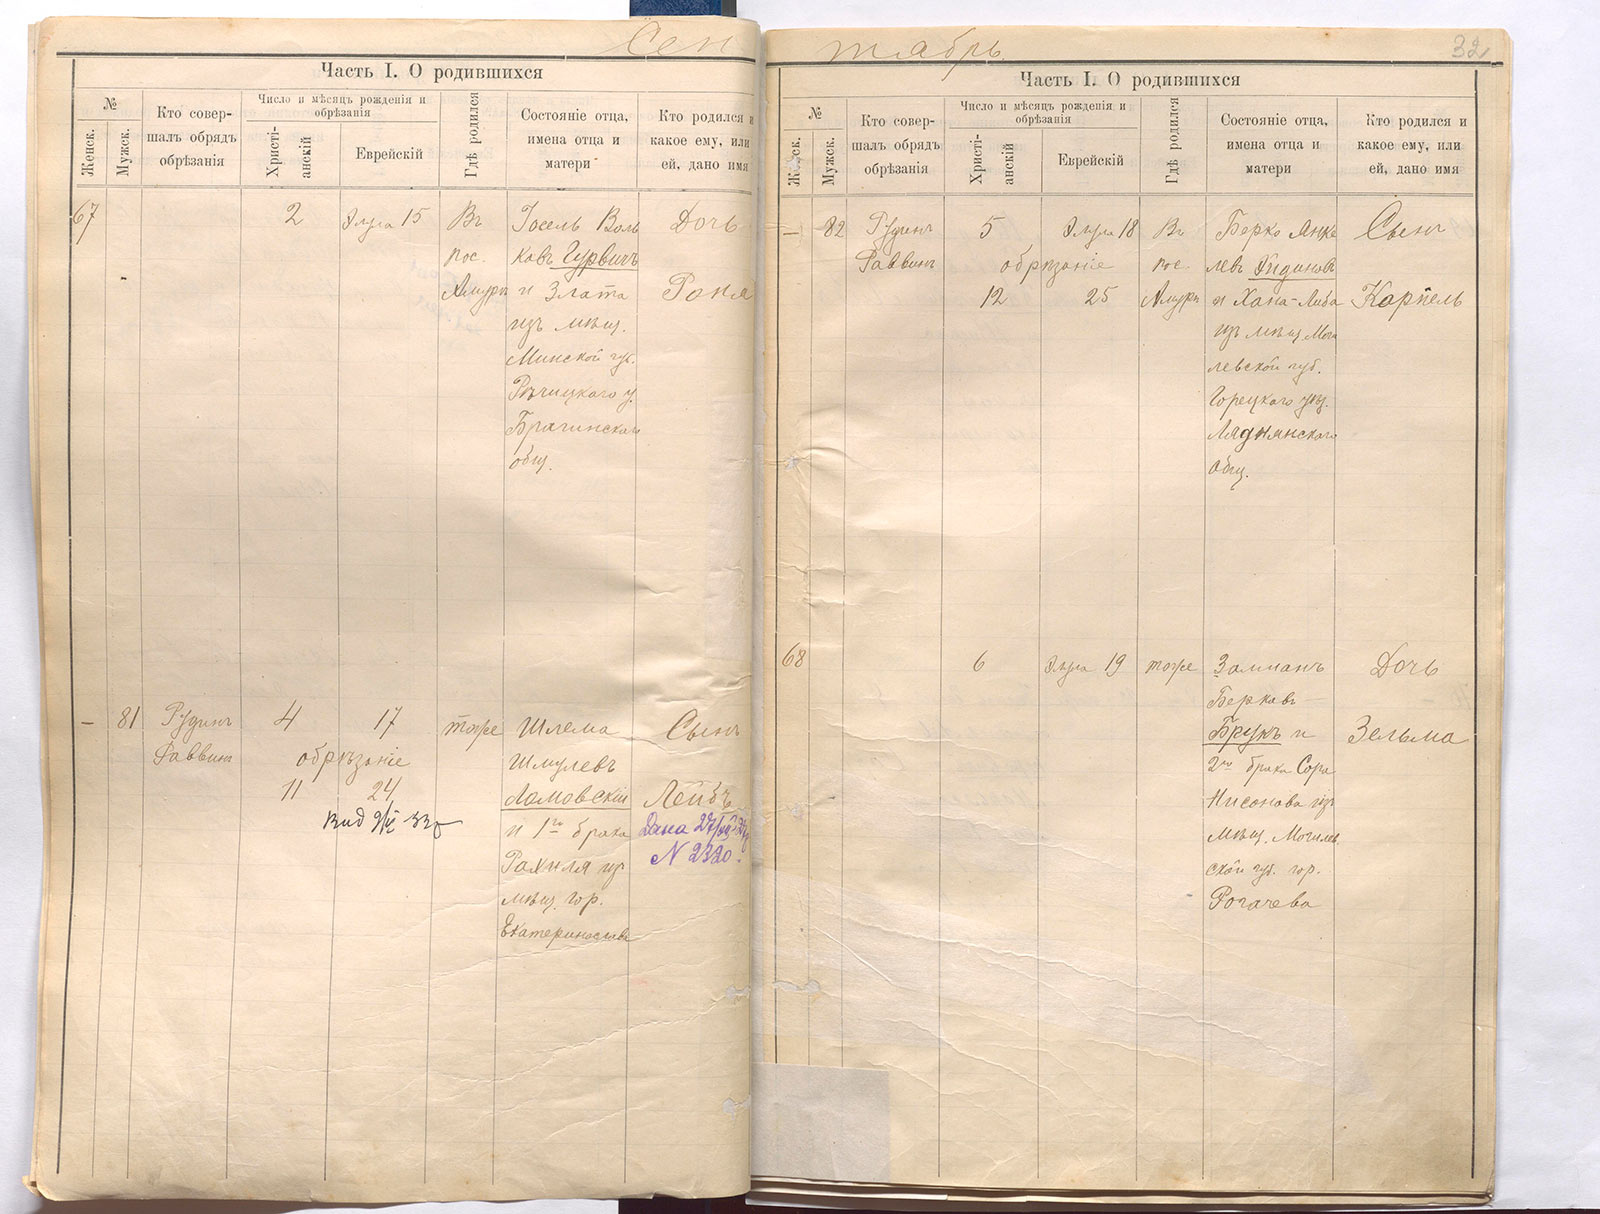 Сен
Часть I. О родившихся
№
Женск.
Мужск.
Кто совер-
шалъ обрядъ
обрѣзанія
Число и мѣсяцъ рожденія и
обрѣзанія
Христі-
анскій
Еврейскій
Гдѣ родился
Состояніе отца,
имена отца и
матери
Кто родился и
какое ему, или
ей, дано имя
67
2
Элула 15
Въ
пос.
Амуръ
Іосель Воль
ковъ Гурвичъ
и Злата
изъ мѣщ.
Минской губ.
Рѣчицкаго у.
Брагинскаго
общ.
Дочь
Роня
— 81
Рудинъ
Раввинъ
4
17
обрѣзаніе
11
24
тоже
Шлема
Шмулевъ
Ломовскій
и 1го брака
Рахиля изъ
мѣщ. гор.
Екатеринослава
Сынъ
Лейбъ
Дана
N 2320.
тябрь
32
Часть I. О родившихся
№
Женск.
Мужск.
Кто совер-
шалъ обрядъ
обрѣзанія
Число и мѣсяцъ рожденія и
обрѣзанія
Христі-
анскій
Еврейскій
Гдѣ родился
Состояніе отца,
имена отца и
матери
Кто родился и
какое ему, или
ей, дано имя
— 82
Рудинъ
Раввинъ
5
Элула 18
обрѣзаніе
12
25
Въ
пос.
Амуръ
Берко Янке
левъ
и Хана-Либа
изъ мѣщ. Моги
левской губ.
Горецкаго уѣз.
Ляднянскаго
общ.
Сынъ
Карпель
68
6
Элула 19
тоже
Залманъ
Берковъ
Брукъ и
2го брака Сора
Нисонова изъ
мѣщ. Могилев
ской губ. гор.
Рогачева
Дочь
Зельма